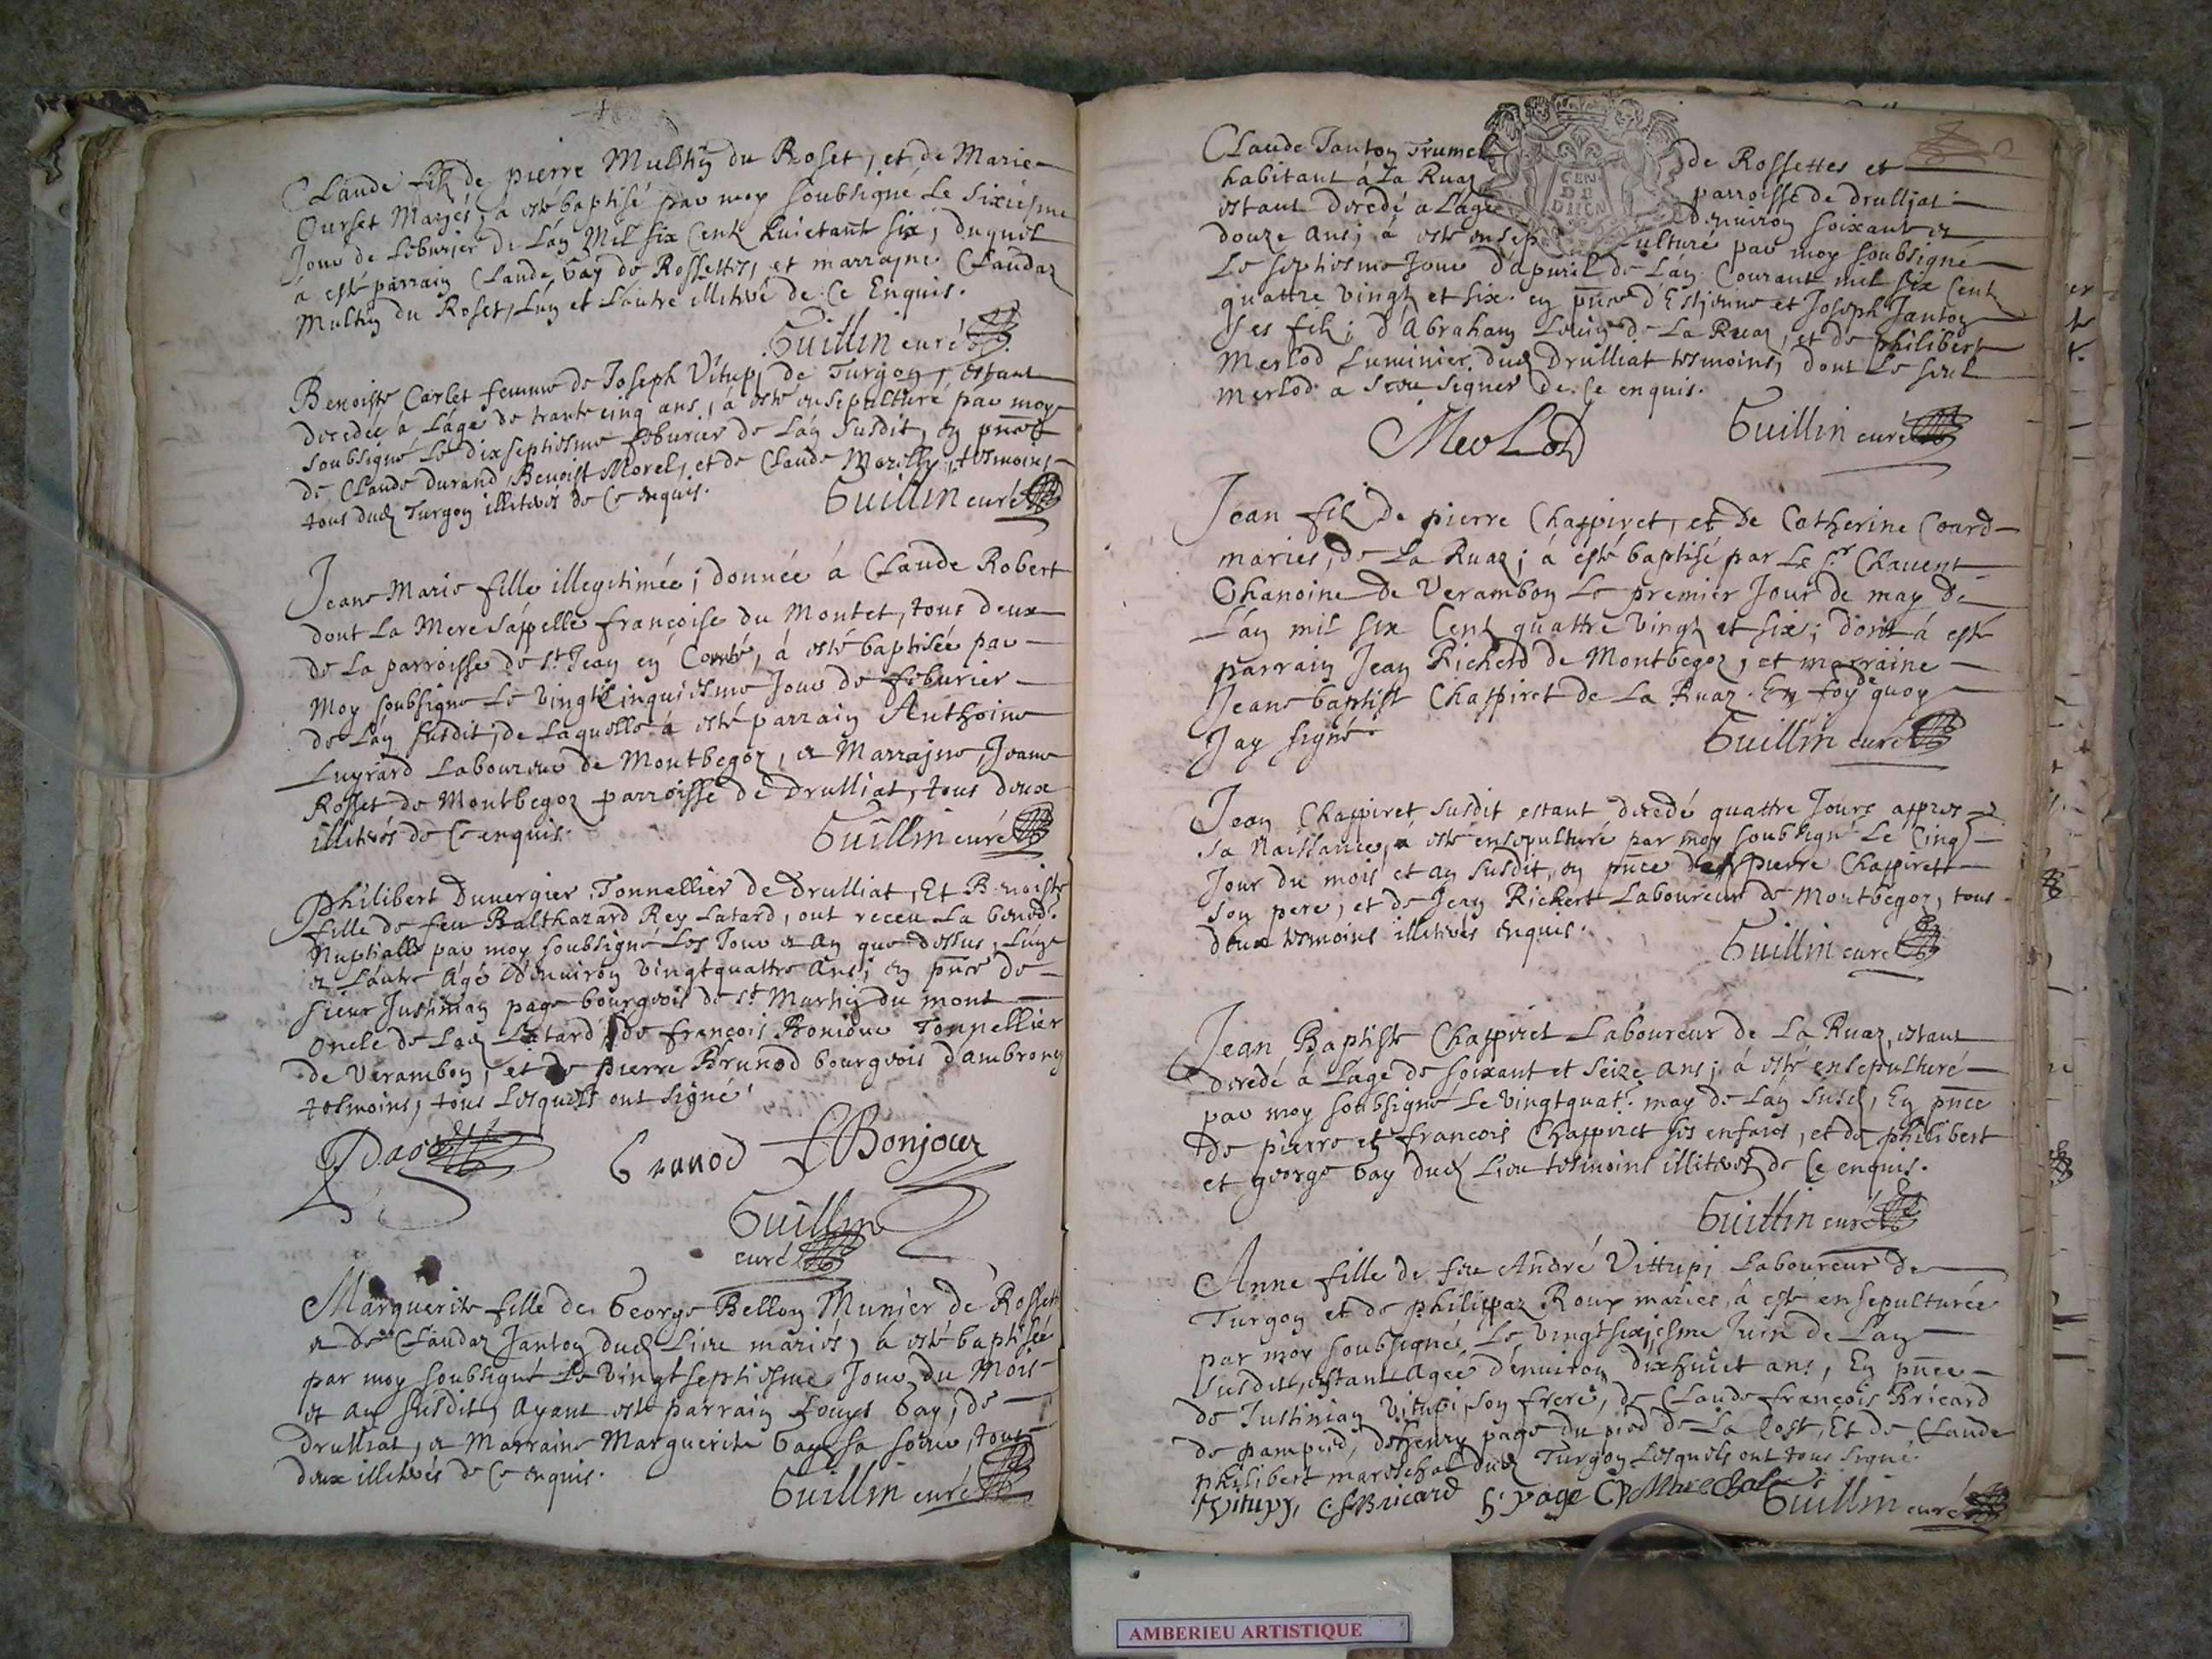 Claude filz de pierre Multhin du Roset, et de Marie
Ourset Mariés, à esté baptisé par moy soubsigné Le sixiesme
Jour de feburier de L'an Mil six Cent huictant six, duquel
à esté parrain Claude Gay de Rossettes, et marrayne Claudaz
Multin du Roset, L'un et L'autre illiteré de Ce Enquis.
Guillin curé
Benoiste Carlet femme de Joseph Vitupi de Turgon, estant
decedée à L'age de trante cinq ans, à esté ensepulturé par moy
soubsigné Le dixseptiesme feburier de L'an susdit, en pnce
de Claude Durand, Benoist Morel, et de Claude tesmoins
tous dud Turgon illiterés de Ce enquis.
Guillin curé
Jeane Marie fille illegitimée; donnée à Claude Robert
dont La Mere s'appelle françoise du Montet, tous deux
de La parroisse de St Jean en Comté, à esté baptisée par
Moy soubsigné Le vingt Cinquiesme Jour de feburier
de L'an susdit; de Laquelle à esté parrain Anthoine
Luyrard Laboureur de Montbegoz, et Marrayne, Jeane
Rosset de Montbegoz parroisse de Drulliat, tous deux
illiterés de Ce enquis.
Guillin curé
Philibert Duuergier Tonnellier de Drulliat, Et Benoiste
fille de feu Balthazard Rey Latard, ont receu La bened.
Nuptialle par moy soubsigné Les Jour et an que dessus, L'un
et L'autre Agé d'enuiron vingtquattre Ans; en pnce de
sieur Justinian page bourgeois de St Martin du mont
oncle de Lad Latard, de françois Bonjour Tonnellier
de Verambon, et de pierre Brunod bourgeois d'ambrony
tesmoins, tous Lesquels ont signé
Brunod FBonjour
Guillin
curé
Marguerite fille de George Bellon Munier de Rossett
et de Claudaz Janton dud Lieu mariés, à esté baptisée
par moy soubsigné Le Vingt septiesme Jour du Mois
et an susdit, ayant esté parrain Louys Gay, de
Drulliat, et Marraine Marguerite Gay sa soeur, tous
deux illiterés de Ce enquis.
Guillin curé
Claude Janton Trumel de Rossettes et
habitant à La Ruaz parroisse de Drulliat
estant decedé a L'age d'enuiron soixant et
douze Ans; à esté ensepulturé par moy soubsigné
Le septiesme Jour d'apuril de L'an Courant mil six Cent
quattre vingt et six. en pnce d'Estienne et Joseph Janton
ses filz; d'Abraham de La Ruaz, et de philibert
Merlod Luminier dud Drulliat tesmoins, dont Le seul
Merlod a sceu signer de Ce enquis.
MerLod Guillin curé
GEN
DE
Jean filz de pierre Chappiret, et de Catherine Coard
mariés, de La Ruaz; à esté baptisé par Le Sr Chauent
Chanoine de Verambon Le premier Jour de may de
L'an mil six Cent quattre vingt et six; dont à esté
parrain Jean Richerd de Montbegoz, et marraine
Jeane baptist Chappiret de La Ruaz. En foy de quoy
J'ay signé.
Guillin curé
Jean Chappiret susdit estant decedé quattre Jours appres
sa Naissance, à esté ensepulturé par moy soubsigné Le Cinq
Jour du mois et an susdit, en pnce de pierre Chappiret
son pere, et de Jean Richert Laboureur de Montbegoz, tous
deux tesmoins illiterés enquis.
Guillin curé
Jean Baptiste Chappiret Laboureur de La Ruaz, estant
decedé à L'age de soixant et seize ans; à esté ensepulturé
par moy soubsigné Le vingtquat. may de L'an susd, En pnce
de pierre et francois Chappiret ses enfans, et de philibert
et george Gay dud Lieu tesmoins illiterez de Ce enquis.
Guillin curé
Anne fille de feu André Vittupi Laboureur de
Turgon et de philippaz Roux mariés, à esté ensepulturée
par moy soubsigné, Le vingtsixiesme Juin de L'an
susdit, estant Agée d'enuiron dixhuict ans, En pnce
de Justinian Vitupi, son frere, de Claude françois Bricard
de pampied, de henry page du pied de La Coste, Et de Claude
philibert mareschal dud Turgon Lesquels ont tous signé.
JVitupy, CfBricard h. page CpMareschal Guillin curé
AMBERIEU ARTISTIQUE